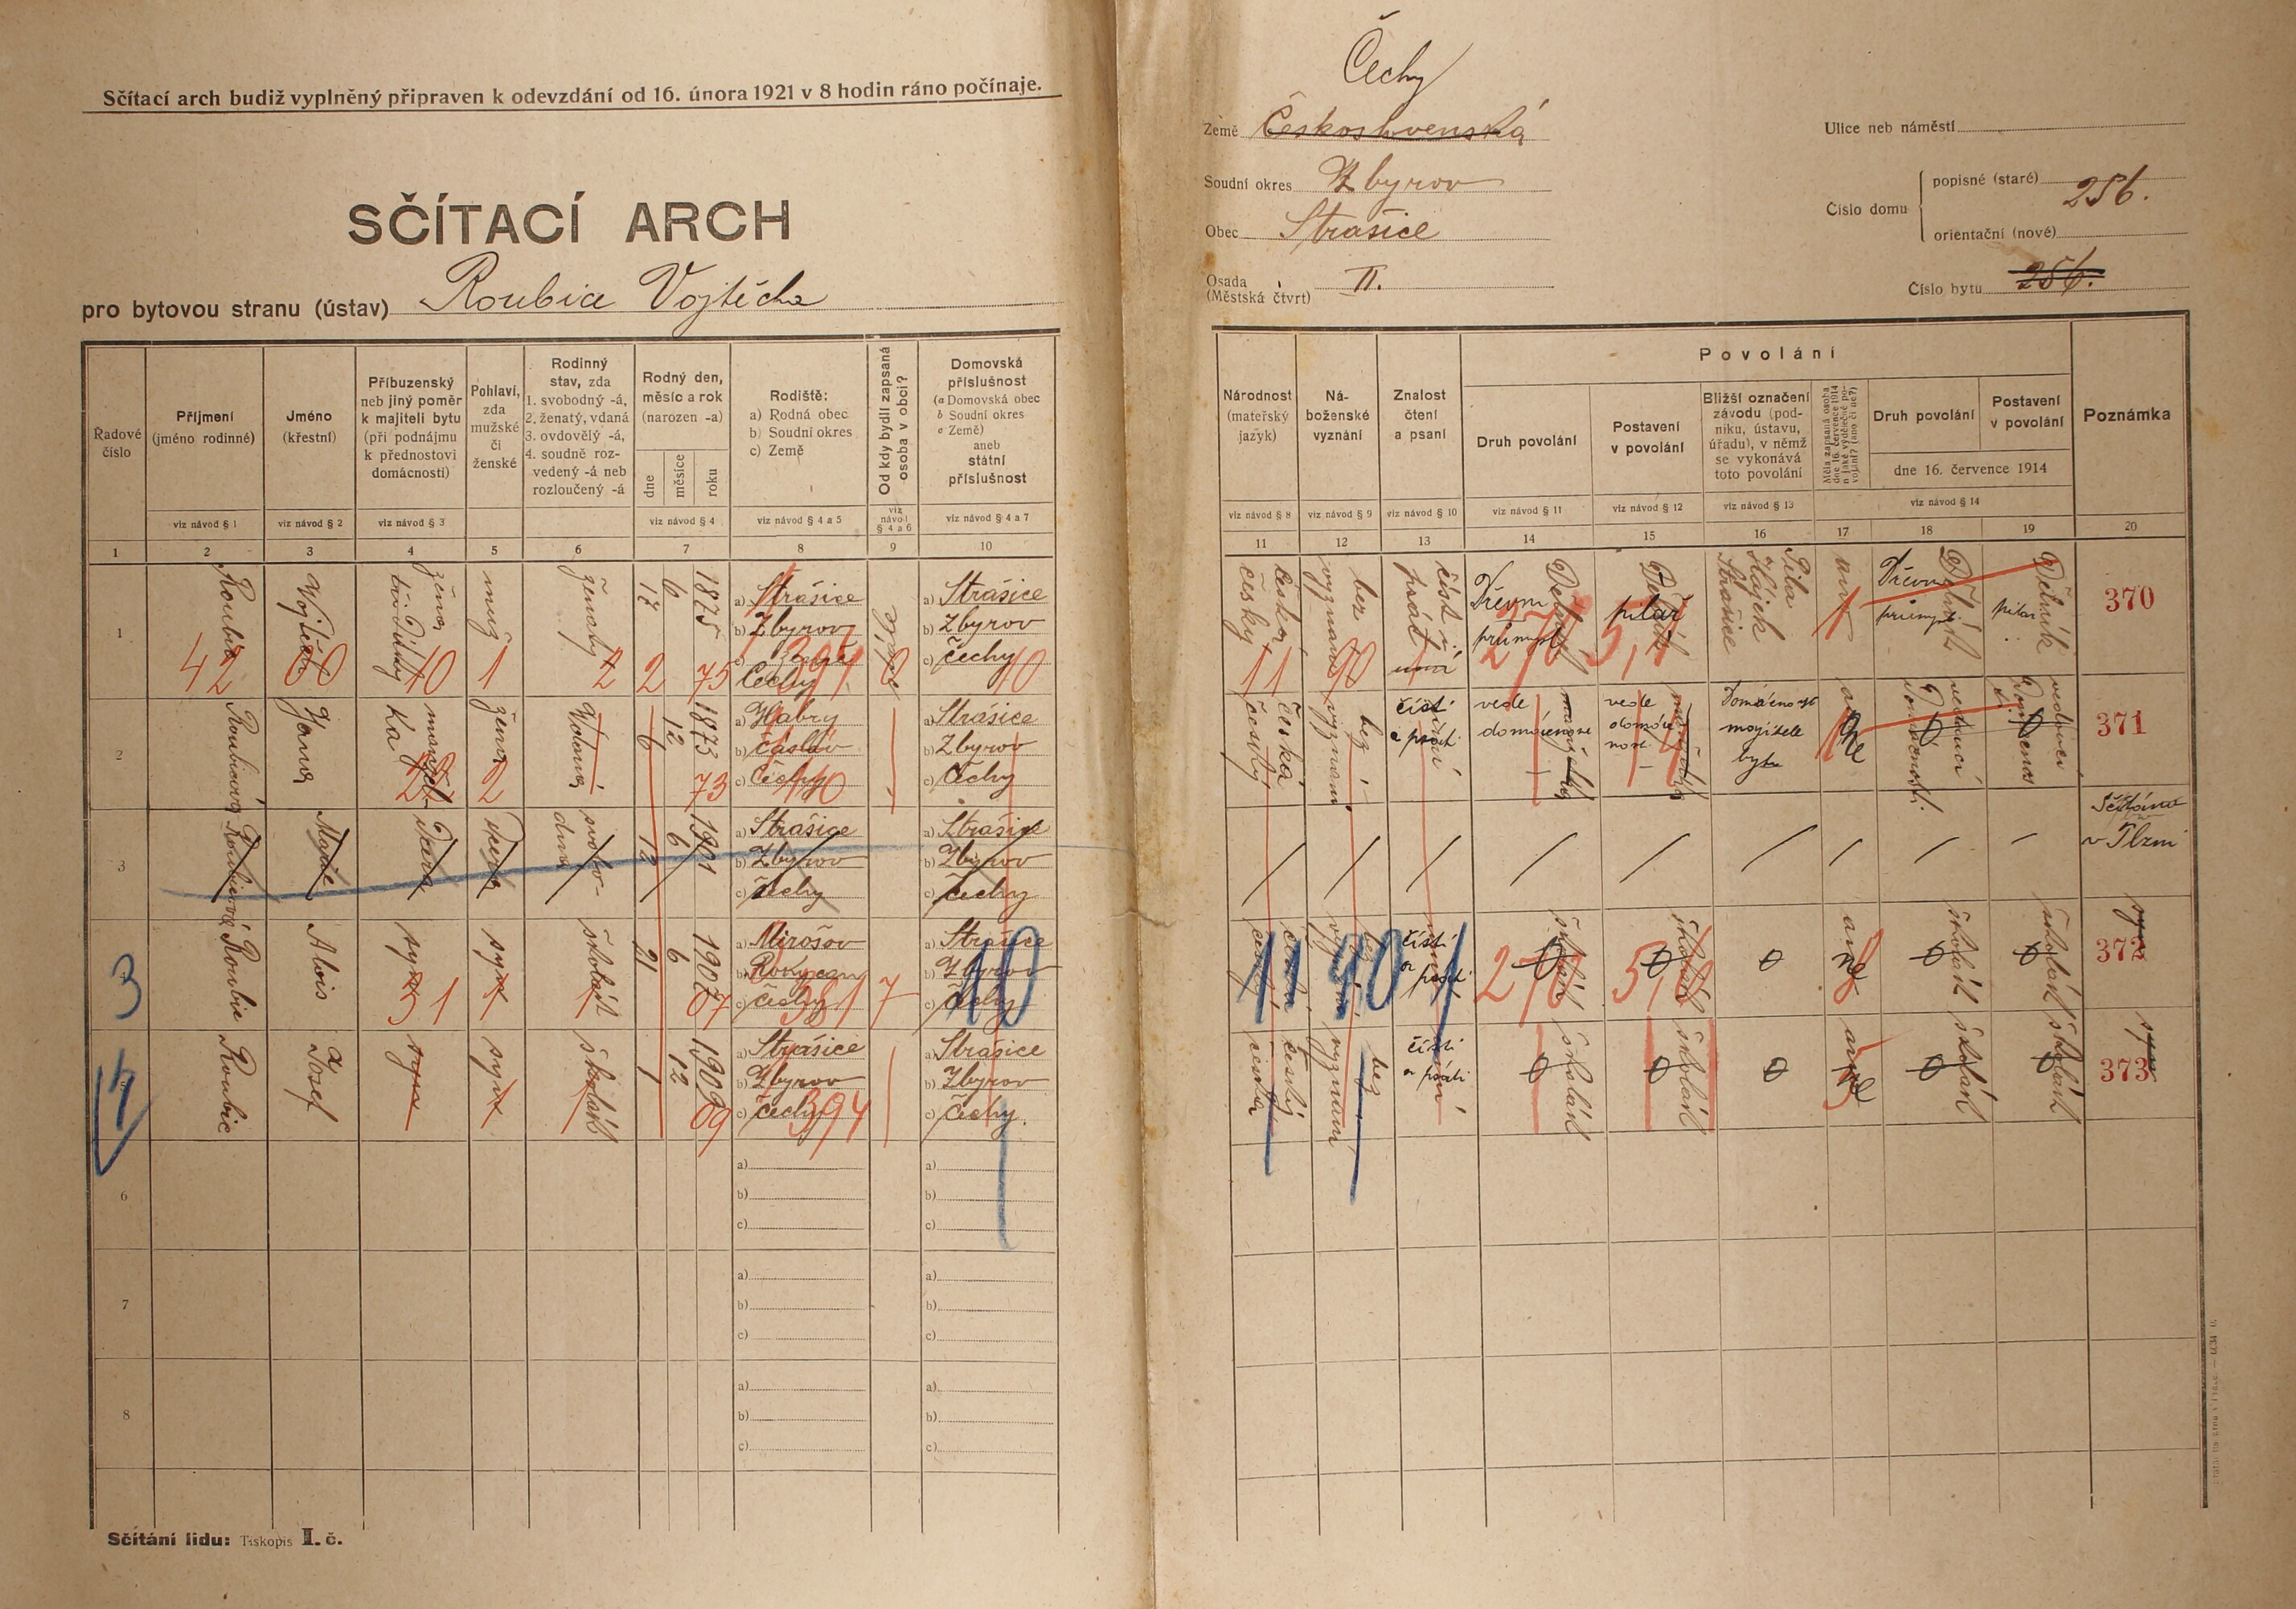 Sčítací arch budiž vyplněný připraven k odevzdání od 16. února 1921 v 8 hodin ráno počínaje.
SČÍTACÍ ARCH
pro bytovou stranu (ústav) Roubica Vojtěcha
Čechy
Země Československá
Soudní okres Zbyrov
Obec Strašice
Osada
(Městská čtvrt) II.
Ulice neb náměstí
Číslo domu
popisné (staré) 256.
orientační (nové)
Číslo bytu 256.
Řadové
číslo
Příjmení
(jméno rodinné)
Jméno
(křestní)
Příbuzenský
neb jiný poměr
k majiteli bytu
(při podnájmu
k přednostovi
domácnosti)
Pohlaví,
zda
mužské
či
ženské
Rodinný
stav, zda
1. svobodný -á,
2. ženatý, vdaná
3. ovdovělý -á,
4. soudně roz-
vedený -á neb
rozloučený -á
Rodný den,
měsíc a rok
(narozen -a)
dne
měsíce
roku
Rodiště:
a) Rodná obec
b) Soudní okres
c) Země
Od kdy bydlí zapsaná
osoba v obci?
Domovská
příslušnost
(a Domovská obec
b Soudní okres
c Země)
aneb
státní
příslušnost
viz návod § 1
viz návod § 2
viz návod § 3
viz návod § 4
viz návod § 4 a 5
viz
návod
§ 4 a 6
viz návod § 4 a 7
1 2 3 4 5 6 7 8 9 10
Národnost
(mateřský
jazyk)
Ná-
boženské
vyznání
Znalost
čtení
a psaní
Povolání
Druh povolání
Postavení
v povolání
Bližší označení
závodu (pod-
niku, ústavu,
úřadu), v němž
se vykonává
toto povolání
Měla zapsaná osoba
dne 16. července 1914
nějaké výdělečné po-
volání? (ano či ne?)
Druh povolání
Postavení
v povolání
dne 16. července 1914
Poznámka
viz návod § 8
viz návod § 9
viz návod § 10
viz návod § 11
viz návod § 12
viz návod § 13
viz návod § 14
11 12 13 14 15 16 17 18 19 20
1
Vojtěch
ženatý
17 6 1875
a) Strašice
b) Zbyrov
c) Čechy
a) Strašice
b) Zbyrov
c) Čechy
42 60 10 1 2 2 75 10
česká
český
bez
vyznání
číst i
psát
umí
Dřevní
průmysl
Dělník
pilař
Dělník
Pila
Hájek
Strašice
Dřevní
průmysl
Dělník
pilař
Dělník
370
2
Roubicová
Jana
manžel
ka
žena
Vdaná
6 12 1873
a) Habry
b) Čáslav
c) Čechy
a) Strašice
b) Zbyrov
c) Čechy
22 2 73 110
česká
český
bez
vyznání
čísti
a psáti
umí
vede
domácnost
manželka
vede
domác
nost
manželka
Domácnost
majitele
bytu
ne
vedoucí
Domácnost
vedoucí
371
3
Roubicová
Marie
Dcera
Dcera
svobo-
dna
12 6 1901
a) Strašice
b) Zbyrov
c) Čechy
a) Strašice
b) Zbyrov
c) Čechy
Sčítána
v Plzni
4
3
Roubic
Alois
syn
syn
školák
21 6 1907
a) Mirošov
b) Rokycany
c) Čechy
a) Strašice
b) Zbyrov
c) Čechy
31 07 381 7 10
česká
český
bez
vyznání
čísti
a psáti
umí
11 90 1
školák
školák
0
ano
ne
školák
školák
syn
372
5
4
Roubic
Josef
syn
syn
školák
1 12 1909
a) Strašice
b) Zbyrov
c) Čechy
a) Strašice
b) Zbyrov
c) Čechy.
09 394
český
česká
bez
vyznání
čísti
a psáti
umí
školák
školák
0
ano
ne
školák
školák
syn
373
6
a)
b)
c)
a)
b)
c)
7
a)
b)
c)
a)
b)
c)
8
a)
b)
c)
a)
b)
c)
Sčítání lidu: Tiskopis I. č.